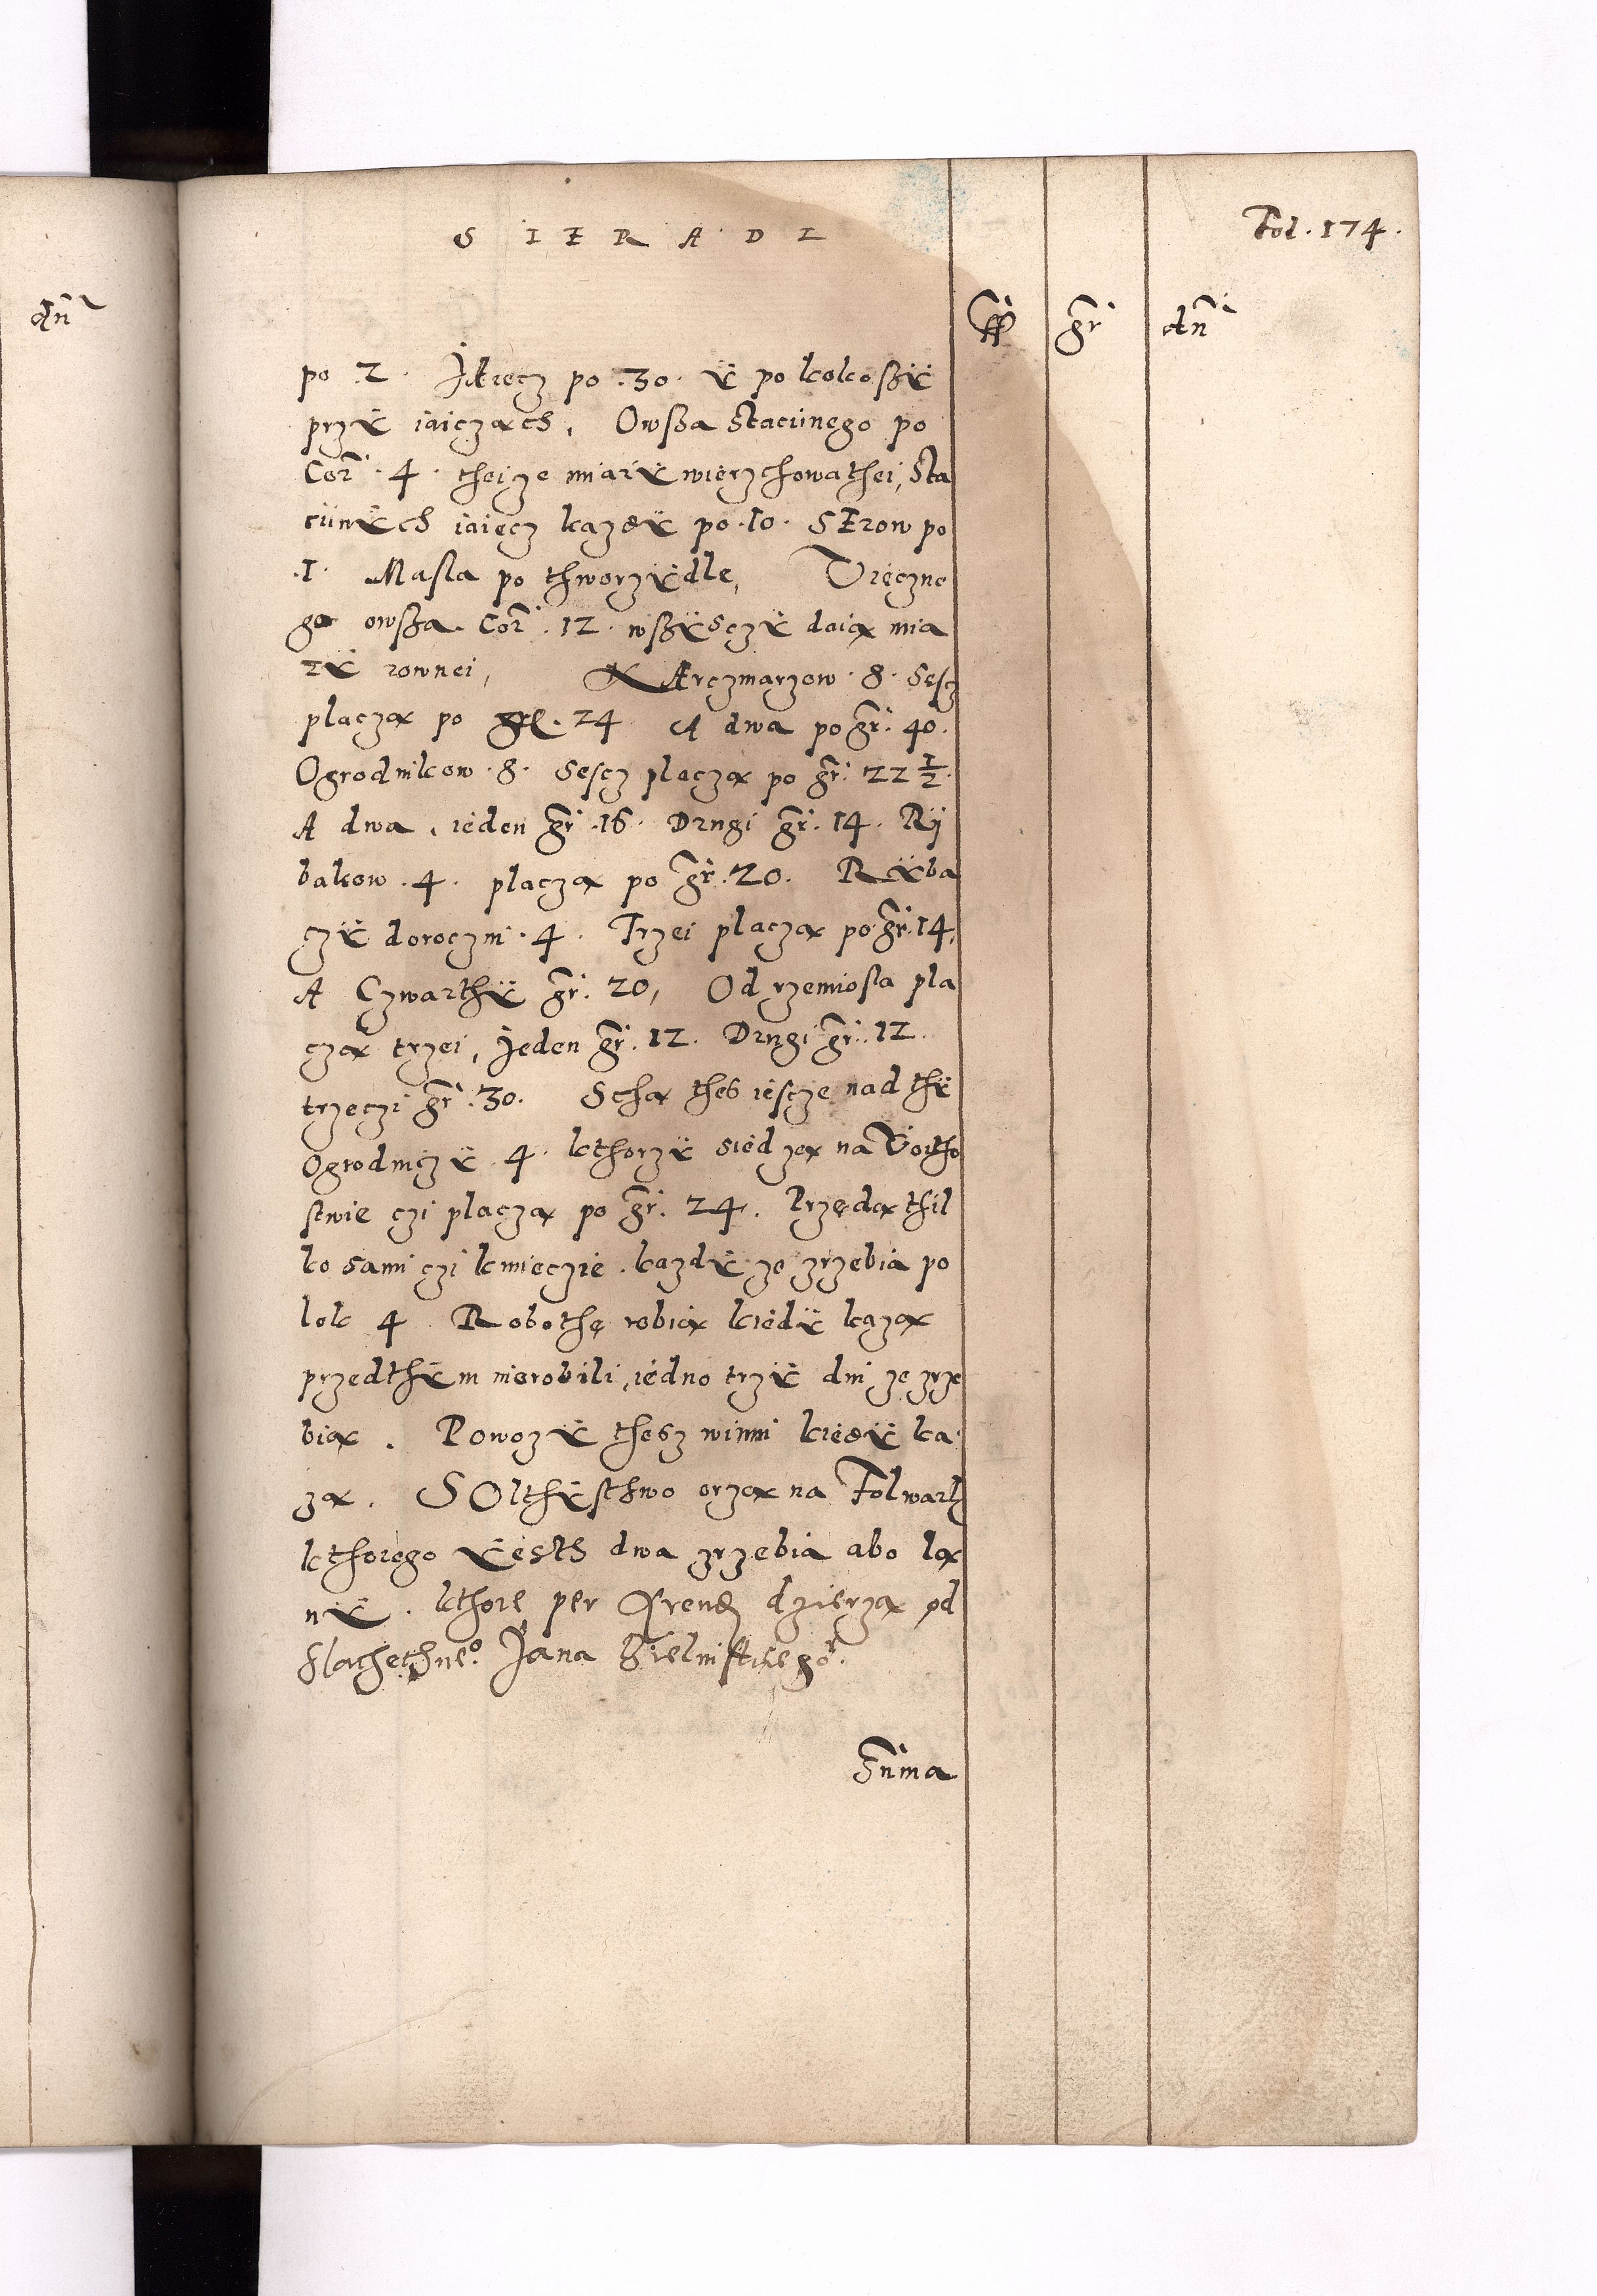 S I E R A D I
Fol. 174.
gr̃
dñ
dñ
po 2. JAiecz po .30. ÿ po kokoßÿ
przÿ iaiczach, Owßa Staciinego po
Cor̃. 4. theize miarÿ wierzchowathei, Sta
ciinÿch iaiecz kazdÿ po .10. SErow po
.1. Masla po thworzÿdle, Vręczne
go owßa. Cor̃. 12. wßÿsczÿ daią mia
rÿ rownei, KArczmarzow .8. Sesz
placzą po gr̃. 24 A dwa po gr̃. 40.
Ogrodnikow .8. Sescz placzą po gr̃. 22 1/2.
A dwa, ieden gr̃ .16. Drugi gr̃. 14. Rÿ
bakow .4. placzą po gr̃. 20. Rÿba
czÿ doroczni .4. Trzei placzą po gr̃. 14,
A Czwarthÿ gr̃. 20, Od rzemiosla pla
czą trzei, Jeden gr̃. 12. Drugi gr̃. 12.
trzeczi gr̃. 30. Schą thes iescze nad thÿ
Ogrodniczÿ .4. kthorzÿ siedzą na Voitho
stwie czi placzą po gr̃. 24. Przędą thil
ko sami czi kmieczie. kazdÿ ze zrzebia po
lok 4 Robothę robią kiedÿ kazą
przedthÿm nierobili, iedno trzÿ dni ze zrze
bią. Powozÿ thesz winni kiedÿ ka
zą. SOlthÿsthwo orzą na Folwark
kthorego ÿesth dwa zrzebia abo łą
nÿ. kthore per Arend dzierzą od
slachethneo. Jana Bielinskiego.
Sũma